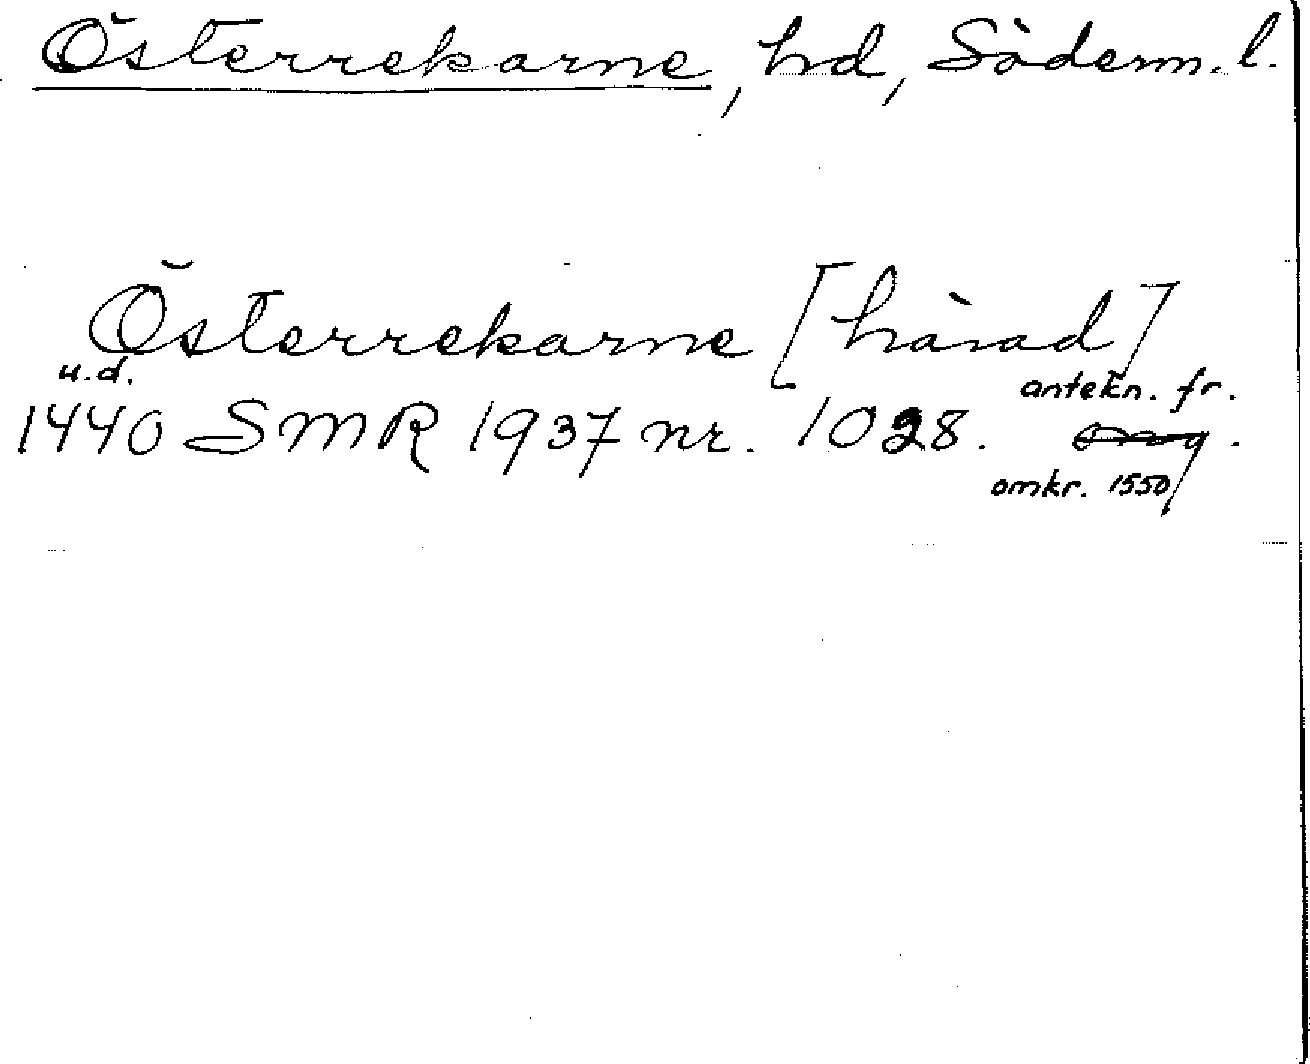 Österrekarne, hd, Söderm. l.
Österrekarne [härad]
u.d.
antekn. fr.
1440 SMR 1937 nr. 1028.
omkr. 1550